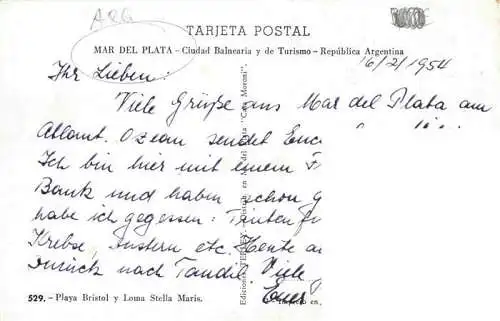 ARG
TARJETA POSTAL
MAR DEL PLATA - Ciudad Balnearia y de Turismo - República Argentina
16/2/1954
Ihr Lieben:
Viele Grüße aus Mar del Plata am
Atlant. Ozean sendet Euch
Ich bin hier mit einem
Bank und haben schon
habe ich gegessen: Tinten
Krebse, Austern etc. Heute
zurück nach Tandil. Viele
Euer
529. - Playa Bristol y Loma Stella Maris.